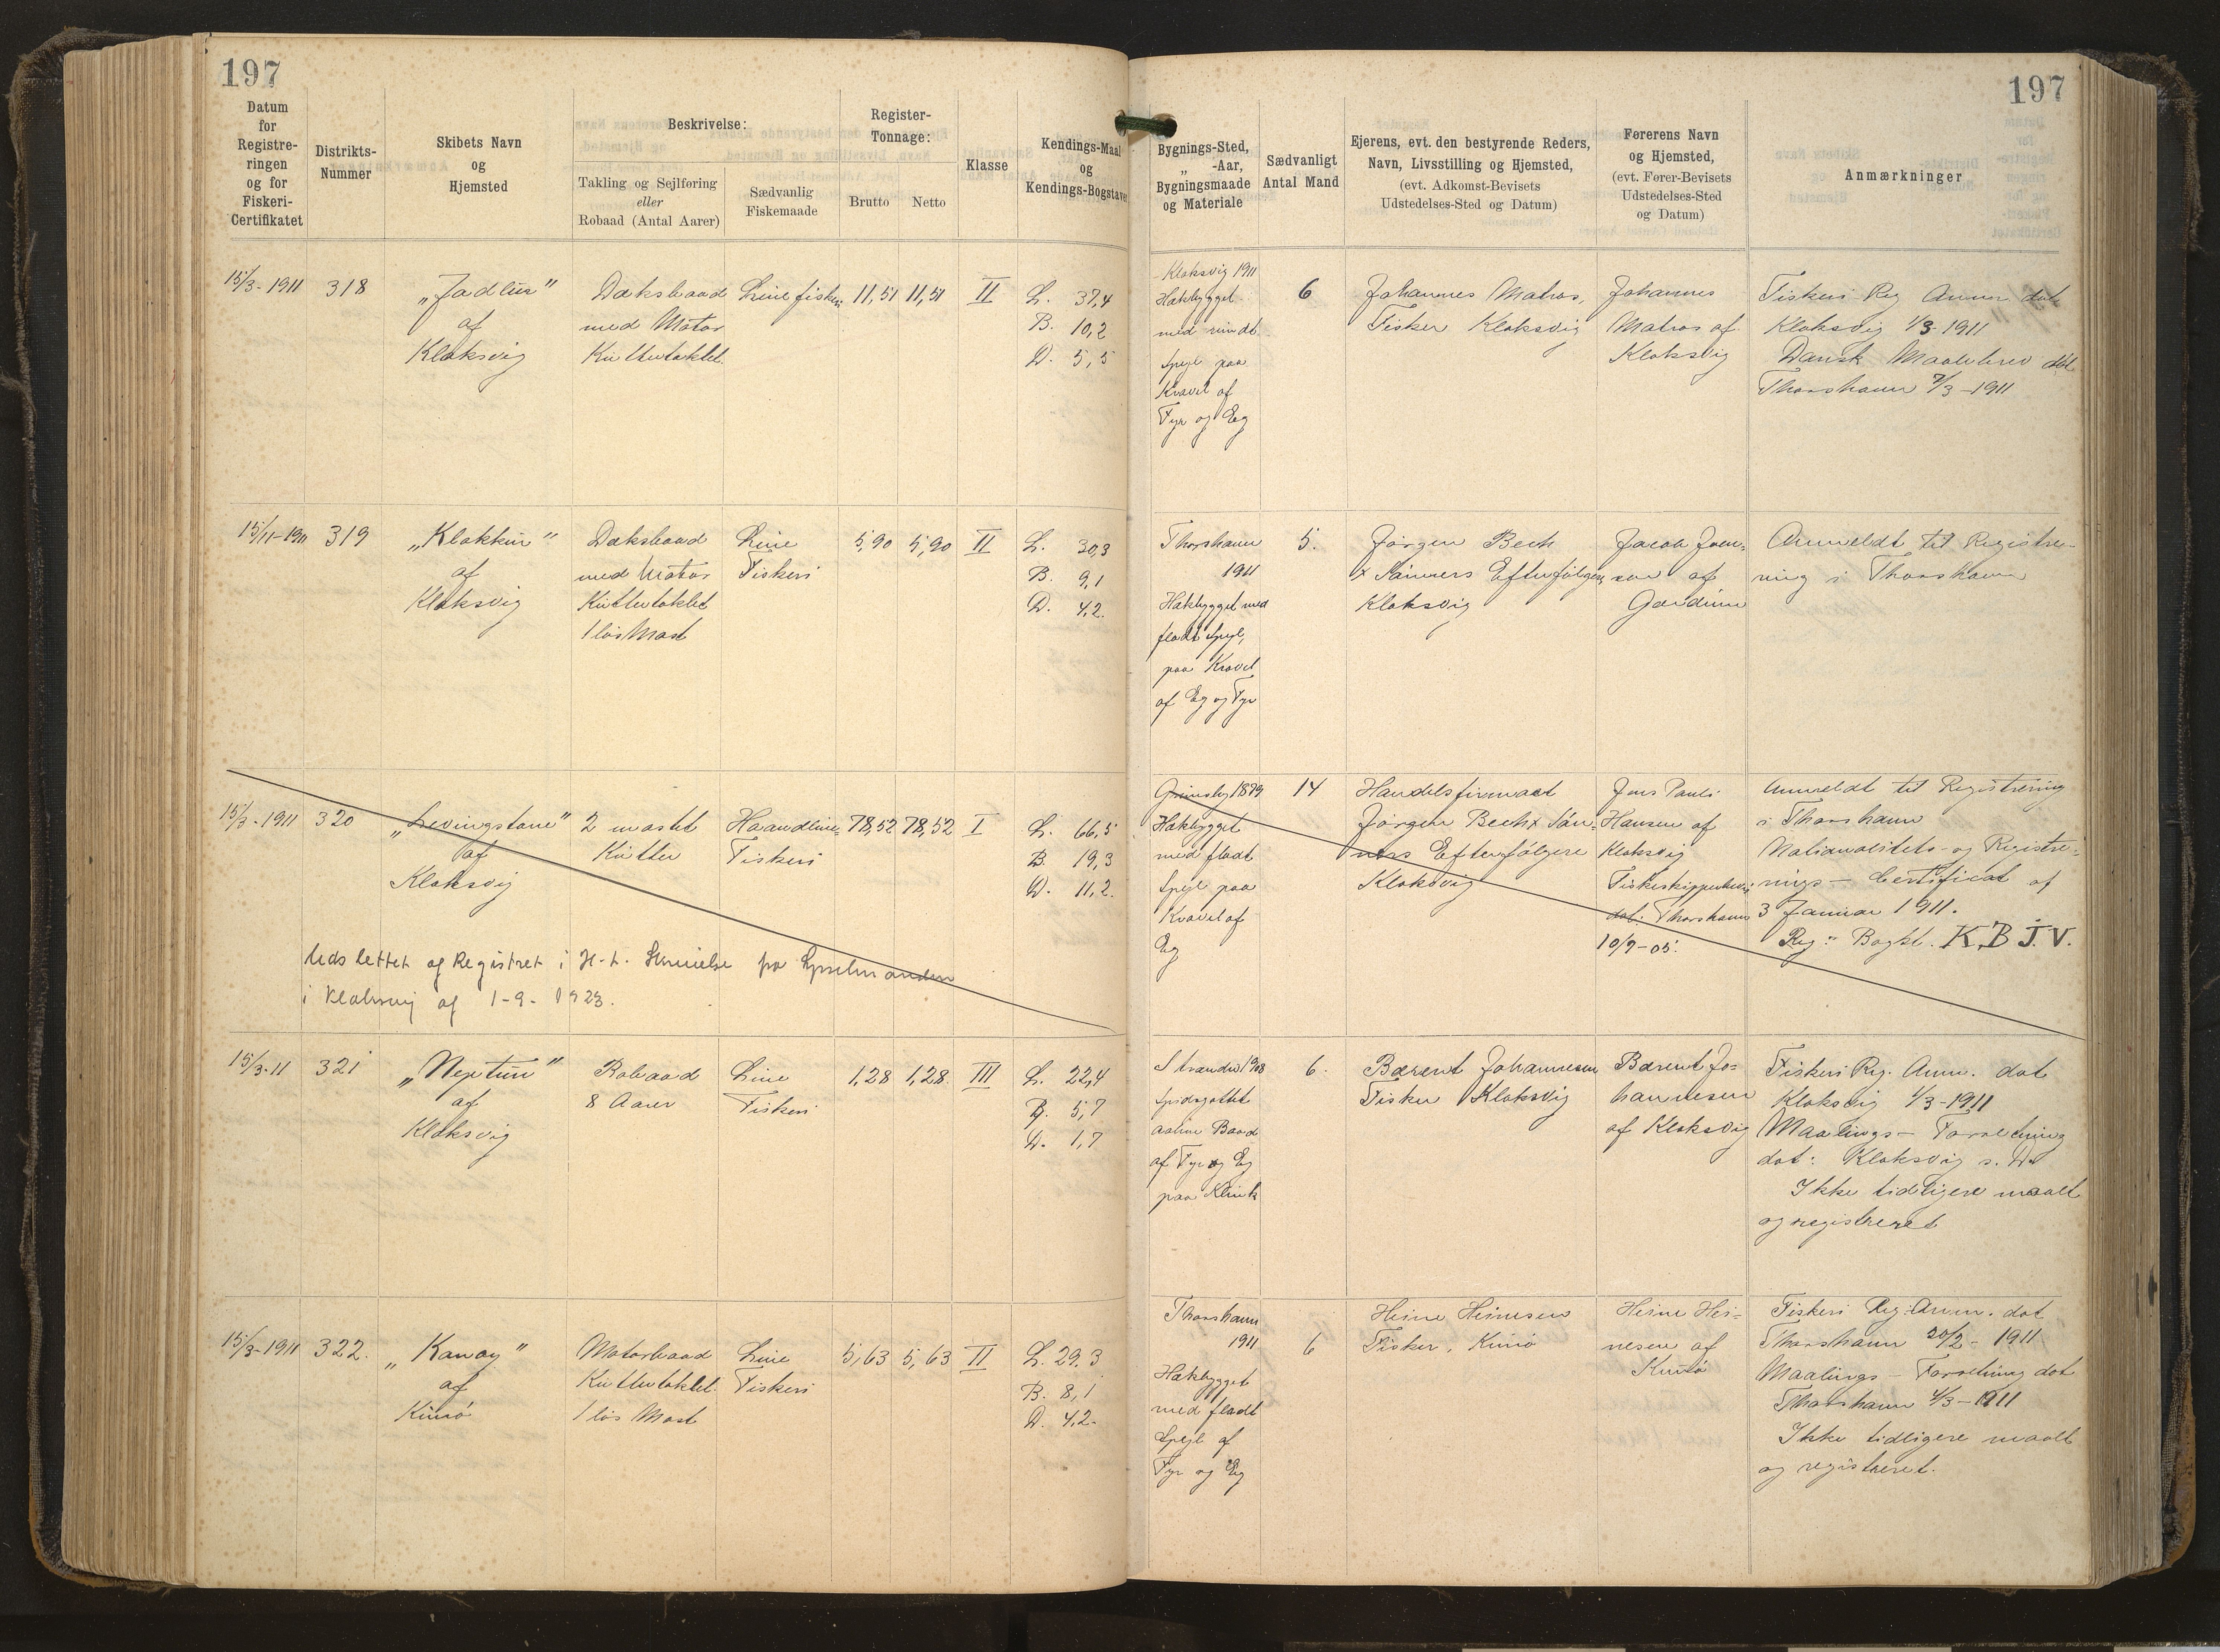 197
Datum
for
Registre-
ringen
og for
Fiskeri-
Certifikatet
Distrikts-
Nummer
Skibets Navn
og
Hjemsted
Beskrivelse:
Takling og Sejlføring
eller
Robaad (Antal Aarer)
Sædvanlig
Fiskemaade
Register-
Tonnage:
Brutto
Netto
Klasse
Kendings-Maal
og
Kendings-Bogstaver
15/3-1911 318
„Jadlur”
af
Klaksvig
Dæksbaad
med Motor
Kuttertaklet
Linefiskeri
11,51 11,51 II
L. 37,4
B. 10,2
D. 5,5
15/11-1911 319
„Klakkur”
af
Klaksvig
Dæksbaad
med Motor
Kuttertaklet
1 løs Mast
Line
Fiskeri
5,90 5,90 II
L. 30,3
B. 9,1
D. 4,2.
15/3-1911 320
„Levingstone”
af
Klaksvig
2 mastet
Kutter
Haandline-
Fiskeri
78,52 78,52 I
L. 66,5
B. 19,3
D. 11,2.
Udslettet af Registret i H. t. Skrivelse fra Sysselmanden
i Klaksvig af 1-9-1923.
15/3-11 321
„Neptun”
af
Klaksvig
Robaad
8 Aarer
Line
Fiskeri
1,28 1,28. III
L. 22,4
B. 5,7
D. 1,7
15/3-1911 322.
„Kanoy”
af
Kunø
Motorbaad
Kuttertaklet.
1 løs Mast
Line
Fiskeri
5,63 5,63 II
L. 29,3
B. 8,1
D. 4,2.
197
Bygnings-Sted,
„ -Aar,
Bygningsmaade
og Materiale
Sædvanligt
Antal Mand
Ejerens, evt. den bestyrende Reders,
Navn, Livsstilling og Hjemsted,
(evt. Adkomst-Bevisets
Udstedelses-Sted og Datum)
Førerens Navn
og Hjemsted,
(evt. Fører-Bevisets
Udstedelses-Sted
og Datum)
Anmærkninger
Klaksvig 1911
Hækbygget
med rundt
Spejl paa
Kravel af
Fyr og Eg
6
Johannes Matras,
Fisker Klaksvig
Johannes
Matras af
Klaksvig
Fiskeri Reg Anm dat
Klaksvig 1/3-1911
Dansk Maalebrev dat
Thorshavn 7/3-1911
Thorshavn
1911
Hækbygget med
fladt Spejl,
paa Kravel
af Eg og Fyr
5.
Jørgen Bech
& Sønners Efterfølgere
Klaksvig
Jacob Joen-
sen af
Anmeldt til Registre-
ring i Thorshavn
Grimsby 1879
Hækbygget
med fladt
Spejl paa
Kravel af
Eg
14
Handelsfirmaet
Jørgen Bech & Søn-
ners Efterfølgere
Klaksvig
Jens Pauli
Hansen af
Klaksvig
Fiskeskipperbevis
dat. Thorshavn
10/9-05.
Anmeldt til Registrering
i Thorshavn
Nationalitets- og Registre-
rings- Certificat af
3 Januar 1911.
Reg: Bogst. K.B.J.V.
Strander 1908
Spidsgattet
aaben Baad
af Fyr og Eg
paa Klink
6.
Bærent Johannesen
Fisker Klaksvig
Bærent Jo-
hannesen
af Klaksvig
Fiskeri Reg. Anm. dat
Klaksvig 1/3-1911
Maalings- Forretning
dat: Klaksvig s. D.
Ikke tidligere maalt
og registreret
Thorshavn
1911
Hækbygget
med fladt
Spejl af
Fyr og Eg
6
Heine Heinesen
Fisker, Kunø
Heine Hei-
nesen af
Kunø
Fiskeri Reg. Anm. dat
Thorshavn 20/2-1911
Maalings- Forretning dat
Thorshavn 4/3-1911
Ikke tidligere maalt
og registreret.